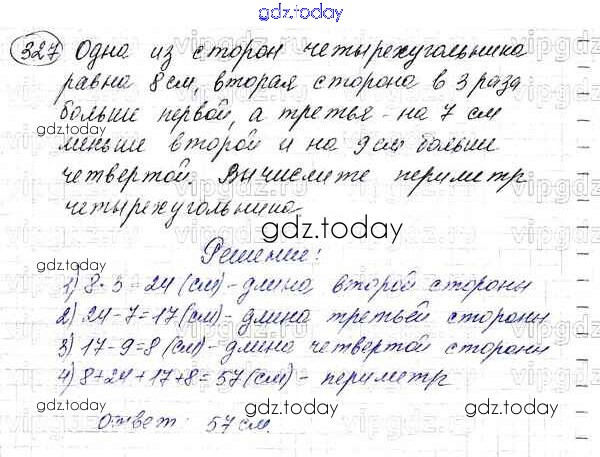 gdz.today
327 Одна из сторон четырехугольника
равна 8 см, вторая сторона в 3 раза
больше первой, а третья - на 7 см
меньше второй и на 9 см больше
четвертой. Вычислите периметр
четырехугольника
Решение:
1) 8·3=24 (см) - длина второй стороны
2) 24-7=17 (см) - длина третьей стороны
3) 17-9=8 (см) - длина четвертой стороны
4) 8+24+17+8=57 (см) - периметр
Ответ: 57 см.
gdz.today
gdz.today
gdz.today
gdz.today
gdz.today
gdz.today
gdz.today
gdz.today
gdz.today
gdz.today